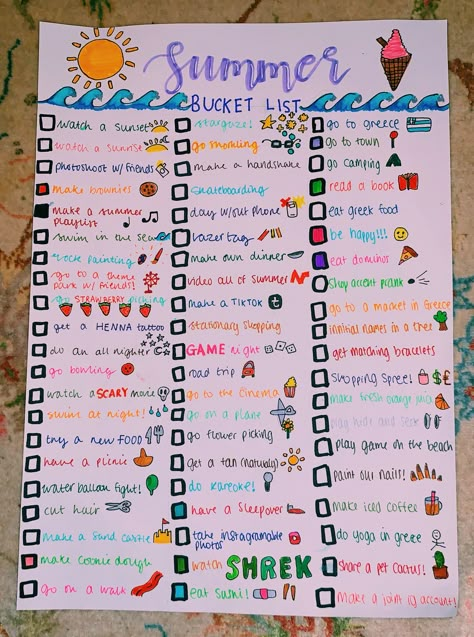 Summer
BUCKET LIST
watch a sunset
watch a sunrise
photoshoot w/ friends
make brownies
make a summer
playlist
swim in the sea
rock painting
go to a theme
park w/ friends!
go STRAWBERRY picking
get a HENNA tattoo
do an all nighter
go bowling
watch a SCARY movie
swim at night!
try a new FOOD
have a picnic
water balloon fight!
cut hair
make a sand castle
make cookie dough
go on a walk
stargaze!
go snorkling
make a handshake
skateboarding
day w/out phone
Lazer tag
make own dinner
video all of summer
make a TIKTOK
stationary shopping
GAME night
road trip
go to the cinema
go on a plane
go flower picking
get a tan (naturaly)
do kareoke!
have a sleepover
take instagramable
photos
watch SHREK
eat sushi!
go to greece
go to town
go camping
read a book
eat greek food
be happy!!!
eat dominos
accent prank
go to a market in Greece
innitial names in a tree
get matching bracelets
shopping spree!
make fresh orange juice
play hide and seek
play game on the beach
paint our nails!
make iced coffee
do yoga in greece
share a pet cactus!
make a joint ig account!